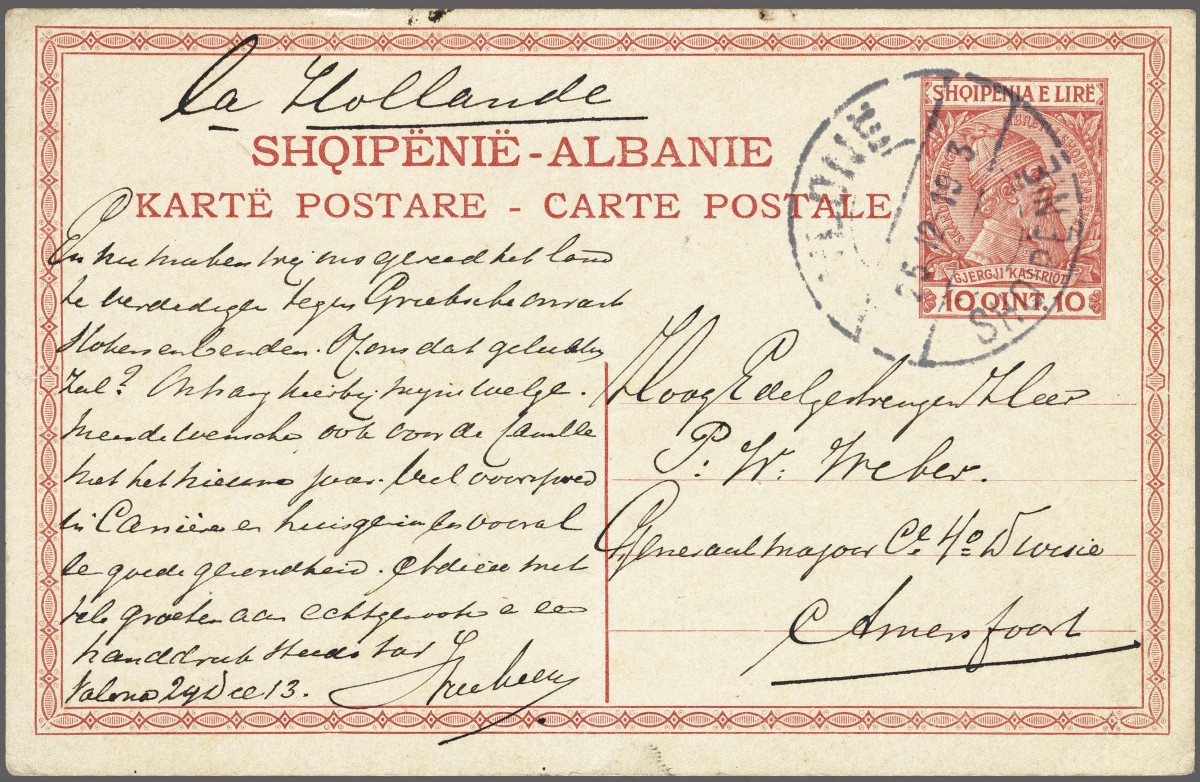 la Hollande
SHQIPËNIË - ALBANIE
KARTË POSTARE - CARTE POSTALE
SHQIPENIA E LIRË
GJERGJ KASTRIOTI
10 QINT. 10
VLONË
25 12 19 3
SHQIPENIË
En nu maken wij ons gereed het land
te verdedigen tegen Grieksche
benden. Of ons dat gelukken
zal? Ontvang hierbij mijn welge-
meende wensch ook voor de familie
met het nieuwe jaar. Veel voorspoed
in Carrière en huisgezin en vooral
de goede gezondheid. met
vele groeten aan echtgenoote & een
handdruk steeds
Valona Dec 13.
HoogEdelgestrengen Heer
P. W. Weber.
Generaal majoor Ct. 4e Divisie
Amersfoort